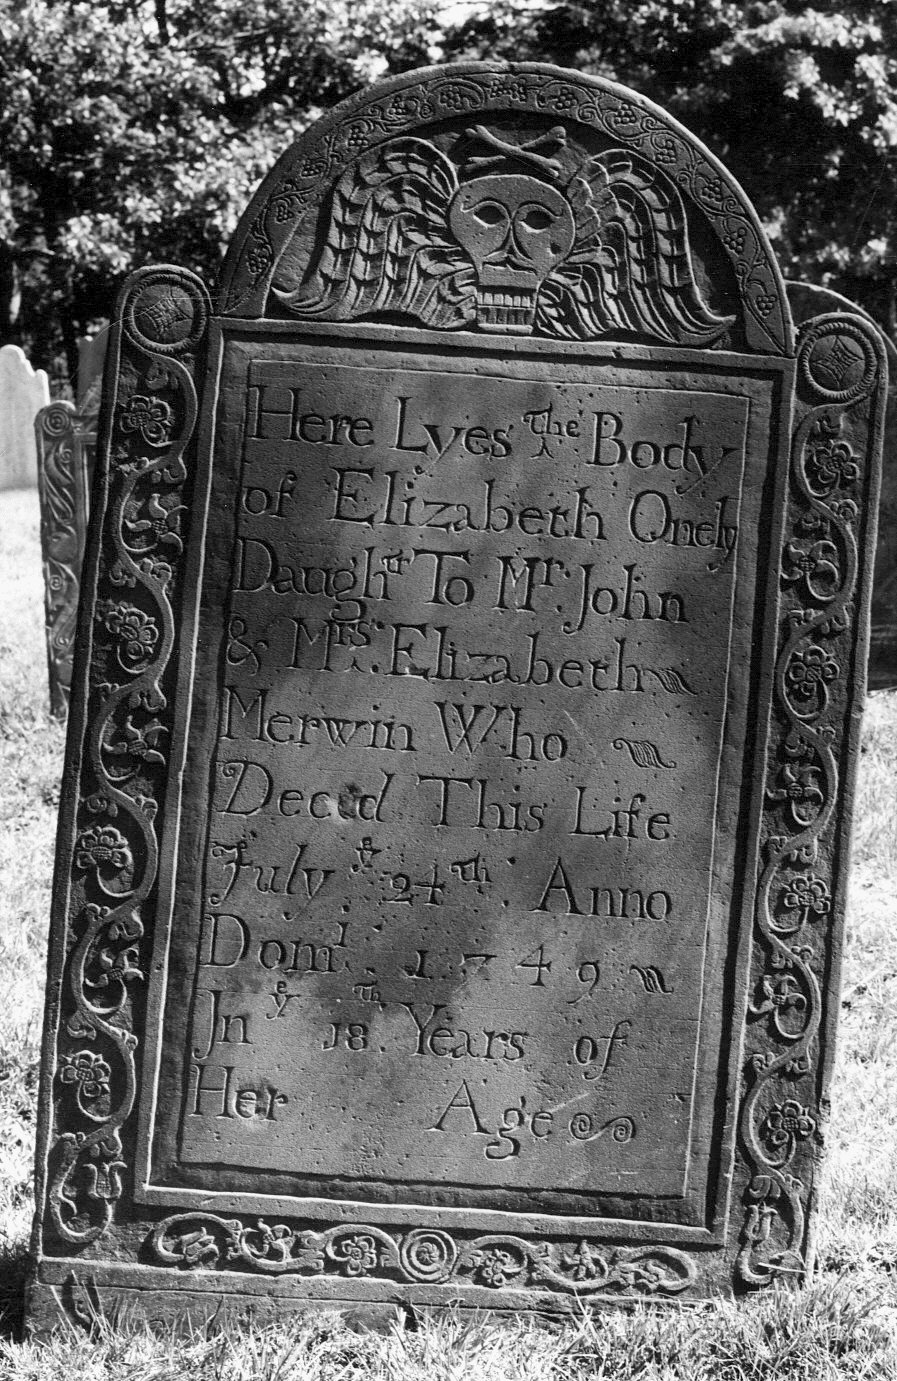 Here Lyes the Body
of Elizabeth Onely
Daughtr To Mr. John
& Mrs. Elizabeth
Merwin Who
Decad This Life
July ye 24th. Anno
Domi. 1749
In ye 18th. Years of
Her Age